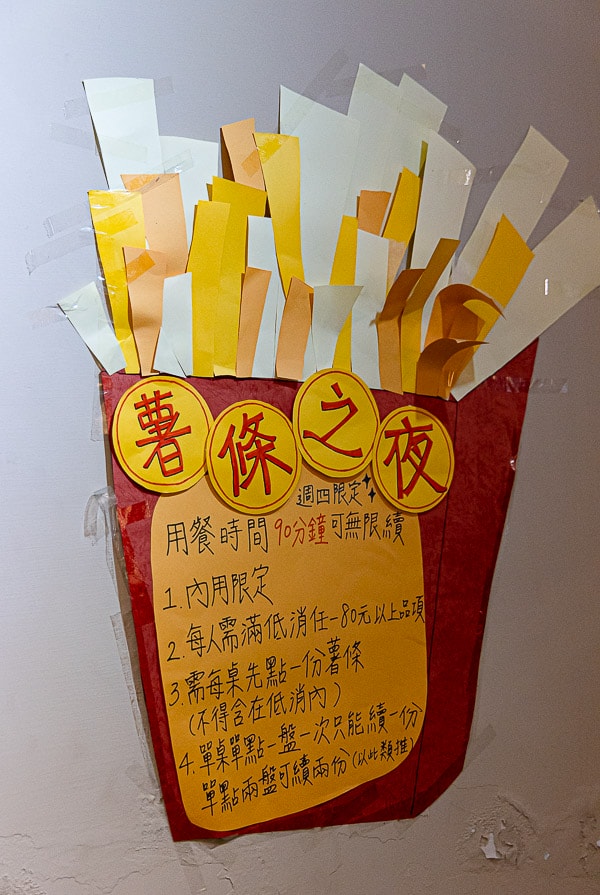 薯條之夜
週四限定
用餐時間90分鐘可無限續
1.內用限定
2.每人需滿低消任一80元以上品項
3.需每桌先點一份薯條
(不得含在低消內)
4.單桌單點一盤一次只能續一份
單點兩盤可續兩份(以此類推)